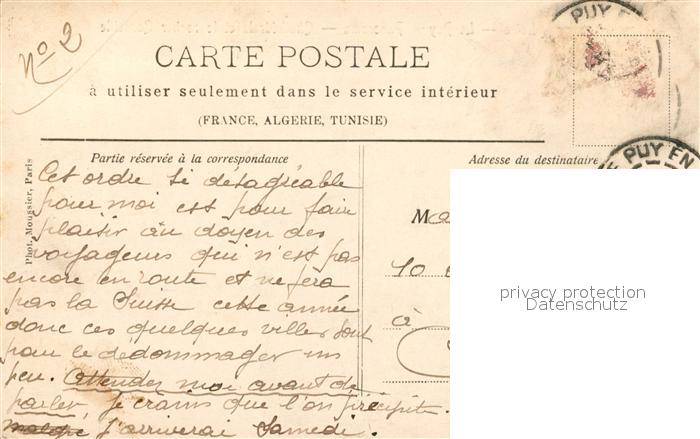 No 2
PUY EN
CARTE POSTALE
à utiliser seulement dans le service intérieur
(FRANCE, ALGERIE, TUNISIE)
Partie réservée à la correspondance
Adresse du destinataire
PUY EN
Phot. Moussier, Paris
Cet ordre si désagréable
pour moi est pour fair
plaisir au doyen des
voyageurs qui n'est pas
encore en route et ne fera
pas la Suisse cette année
donc ces quelques villes sont
pour le dédommager un
peu. Attendez moi avant de
parler, je crains que l'on précipite.
j'arriverai Samedi.
M
10
à
privacy protection
Datenschutz